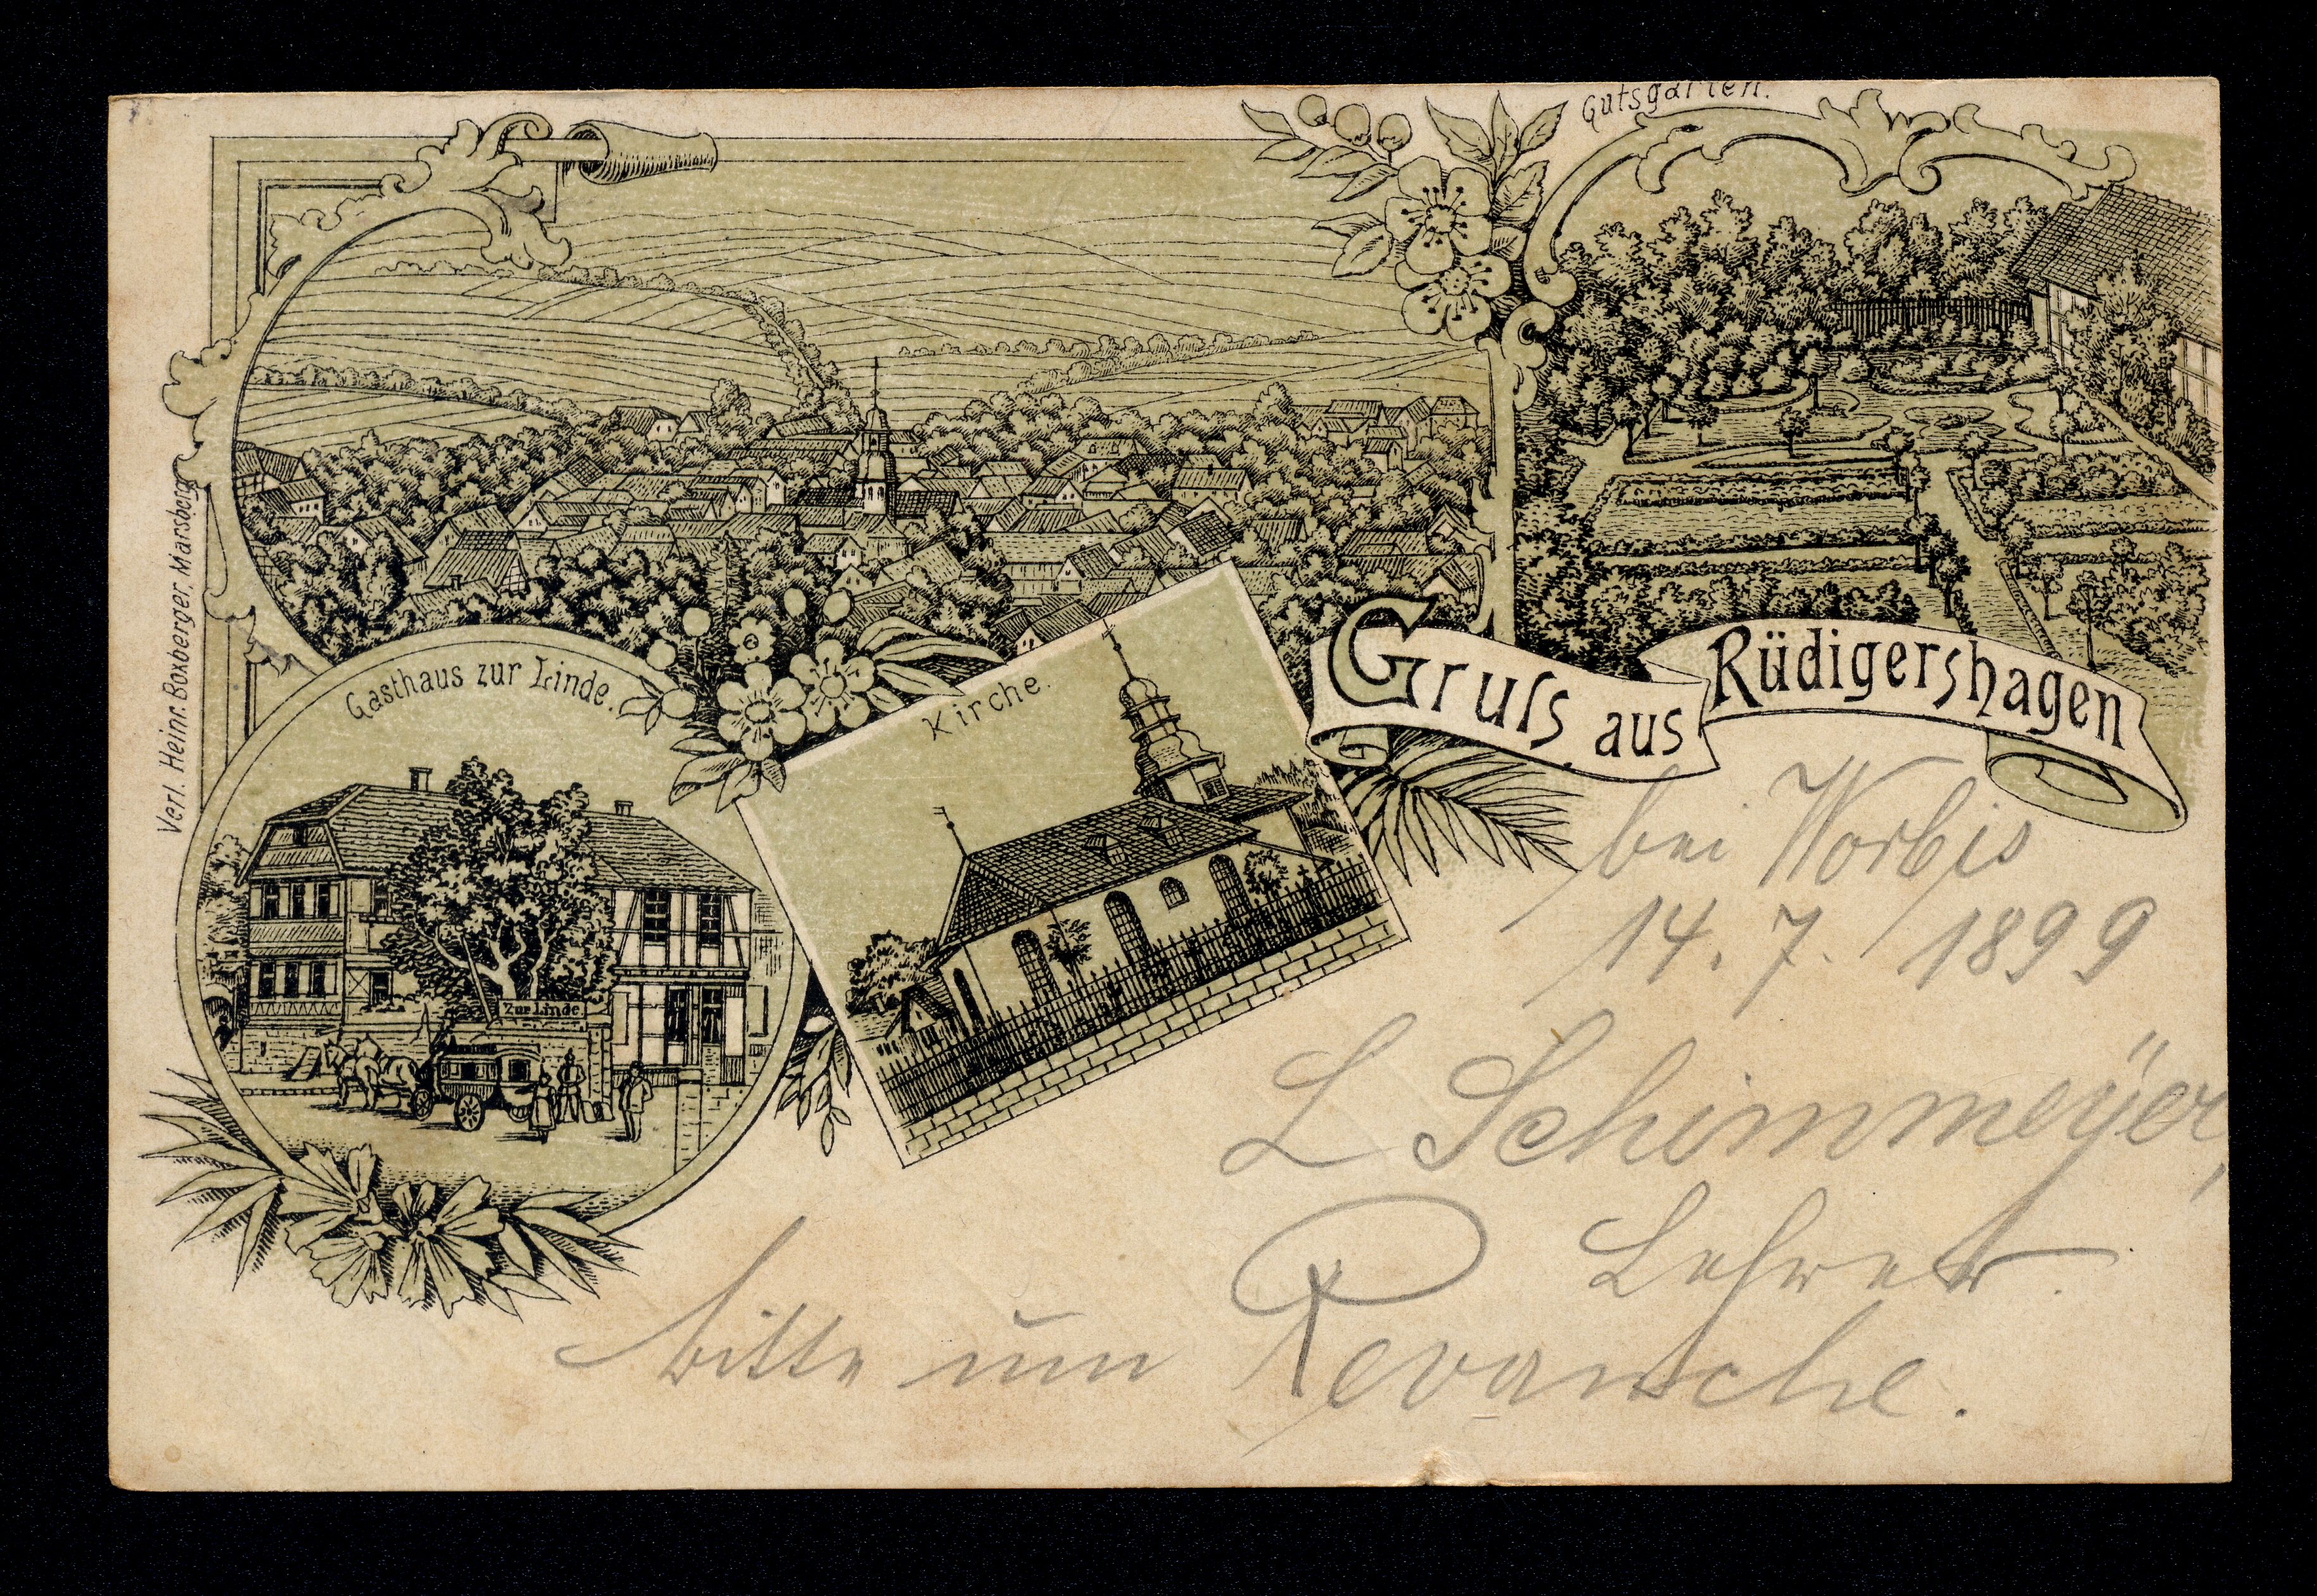 Gutsgarten.
Verl. Heinr. Boxberger, Marsberg
Gasthaus zur Linde.
Kirche.
Zur Linde
Gruss aus Rüdigershagen
bei Worbis
14. 7. 1899
L Schimmeÿer,
Lehrer.
bitte um Revanche.